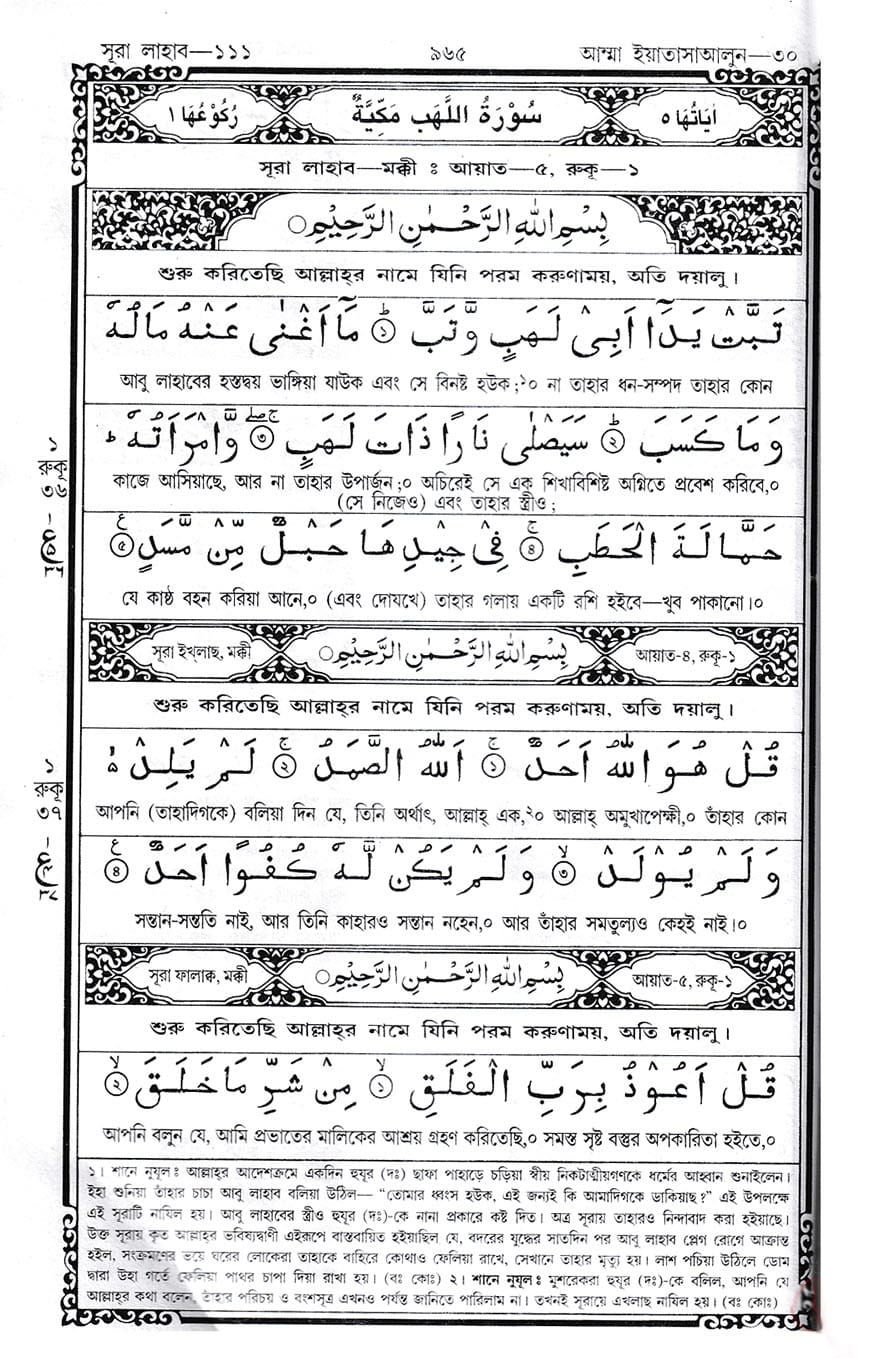 সূরা লাহাব—১১১ ৯৬৫ আম্মা ইয়াতাসাআলুন—৩০
اٰيَاتُهَا ٥ سُوْرَةُ اللَّهَبِ مَكِّيَّةٌ رُكُوْعُهَا ١
সূরা লাহাব—মক্কী ঃ আয়াত—৫, রুকূ—১
بِسْمِ اللهِ الرَّحْمٰنِ الرَّحِيْمِ○
শুরু করিতেছি আল্লাহ্‌র নামে যিনি পরম করুণাময়, অতি দয়ালু।
تَبَّتْ يَدَآ اَبِىْ لَهَبٍ وَّتَبَّ ۝١ مَآ اَغْنٰى عَنْهُ مَالُهٗ
আবু লাহাবের হস্তদ্বয় ভাঙ্গিয়া যাউক এবং সে বিনষ্ট হউক;১০ না তাহার ধন-সম্পদ তাহার কোন
وَمَا كَسَبَ ۝٢ سَيَصْلٰى نَارًا ذَاتَ لَهَبٍ ۝٣ وَّامْرَاَتُهٗ ط
কাজে আসিয়াছে, আর না তাহার উপার্জন;০ অচিরেই সে এক শিখাবিশিষ্ট অগ্নিতে প্রবেশ করিবে,০
(সে নিজেও) এবং তাহার স্ত্রীও;
حَمَّالَةَ الْحَطَبِ ۝٤ فِىْ جِيْدِهَا حَبْلٌ مِّنْ مَّسَدٍ ۝٥
যে কাষ্ঠ বহন করিয়া আনে,০ (এবং দোযখে) তাহার গলায় একটি রশি হইবে—খুব পাকানো।০
১
রুকূ
৩৬
সূরা ইখ্‌লাছ, মক্কী بِسْمِ اللهِ الرَّحْمٰنِ الرَّحِيْمِ○ আয়াত-৪, রুকূ-১
শুরু করিতেছি আল্লাহ্‌র নামে যিনি পরম করুণাময়, অতি দয়ালু।
قُلْ هُوَ اللهُ اَحَدٌ ۝١ اَللهُ الصَّمَدُ ۝٢ لَمْ يَلِدْ ۵
আপনি (তাহাদিগকে) বলিয়া দিন যে, তিনি অর্থাৎ, আল্লাহ্‌ এক,২০ আল্লাহ্‌ অমুখাপেক্ষী,০ তাঁহার কোন
১
রুকূ
৩৭
وَلَمْ يُوْلَدْ ۝٣ وَلَمْ يَكُنْ لَّهٗ كُفُوًا اَحَدٌ ۝٤
সন্তান-সন্ততি নাই, আর তিনি কাহারও সন্তান নহেন,০ আর তাঁহার সমতুল্যও কেহই নাই।০
সূরা ফালাক্ব, মক্কী بِسْمِ اللهِ الرَّحْمٰنِ الرَّحِيْمِ○ আয়াত-৫, রুকূ-১
শুরু করিতেছি আল্লাহ্‌র নামে যিনি পরম করুণাময়, অতি দয়ালু।
قُلْ اَعُوْذُ بِرَبِّ الْفَلَقِ ۝١ مِنْ شَرِّ مَا خَلَقَ ۝٢
আপনি বলুন যে, আমি প্রভাতের মালিকের আশ্রয় গ্রহণ করিতেছি,০ সমস্ত সৃষ্ট বস্তুর অপকারিতা হইতে,০
১। শানে নুযূল ঃ আল্লাহ্‌র আদেশক্রমে একদিন হুযূর (দঃ) ছাফা পাহাড়ে চড়িয়া স্বীয় নিকটাত্মীয়গণকে ধর্মের আহ্বান শুনাইলেন।
ইহা শুনিয়া তাঁহার চাচা আবু লাহাব বলিয়া উঠিল— “তোমার ধ্বংস হউক, এই জন্যই কি আমাদিগকে ডাকিয়াছ?” এই উপলক্ষে
এই সূরাটি নাযিল হয়। আবু লাহাবের স্ত্রীও হুযূর (দঃ)-কে নানা প্রকারে কষ্ট দিত। অত্র সূরায় তাহারও নিন্দাবাদ করা হইয়াছে।
উক্ত সূরায় কৃত আল্লাহর ভবিষ্যদ্বাণী এইরূপে বাস্তবায়িত হইয়াছিল যে, বদরের যুদ্ধের সাতদিন পর আবু লাহাব প্লেগ রোগে আক্রান্ত
হইল, সংক্রমণের ভয়ে ঘরের লোকেরা তাহাকে বাহিরে কোথাও ফেলিয়া রাখে, সেখানে তাহার মৃত্যু হয়। লাশ পচিয়া উঠিলে ডোম
দ্বারা উহা গর্তে ফেলিয়া পাথর চাপা দিয়া রাখা হয়। (বঃ কোঃ) ২। শানে নুযূল ঃ মুশরেকরা হুযূর (দঃ)-কে বলিল, আপনি যে
আল্লাহর কথা বলেন, তাঁহার পরিচয় ও বংশসূত্র এখনও পর্যন্ত জানিতে পারিলাম না। তখনই সূরায়ে এখলাছ নাযিল হয়। (বঃ কোঃ)